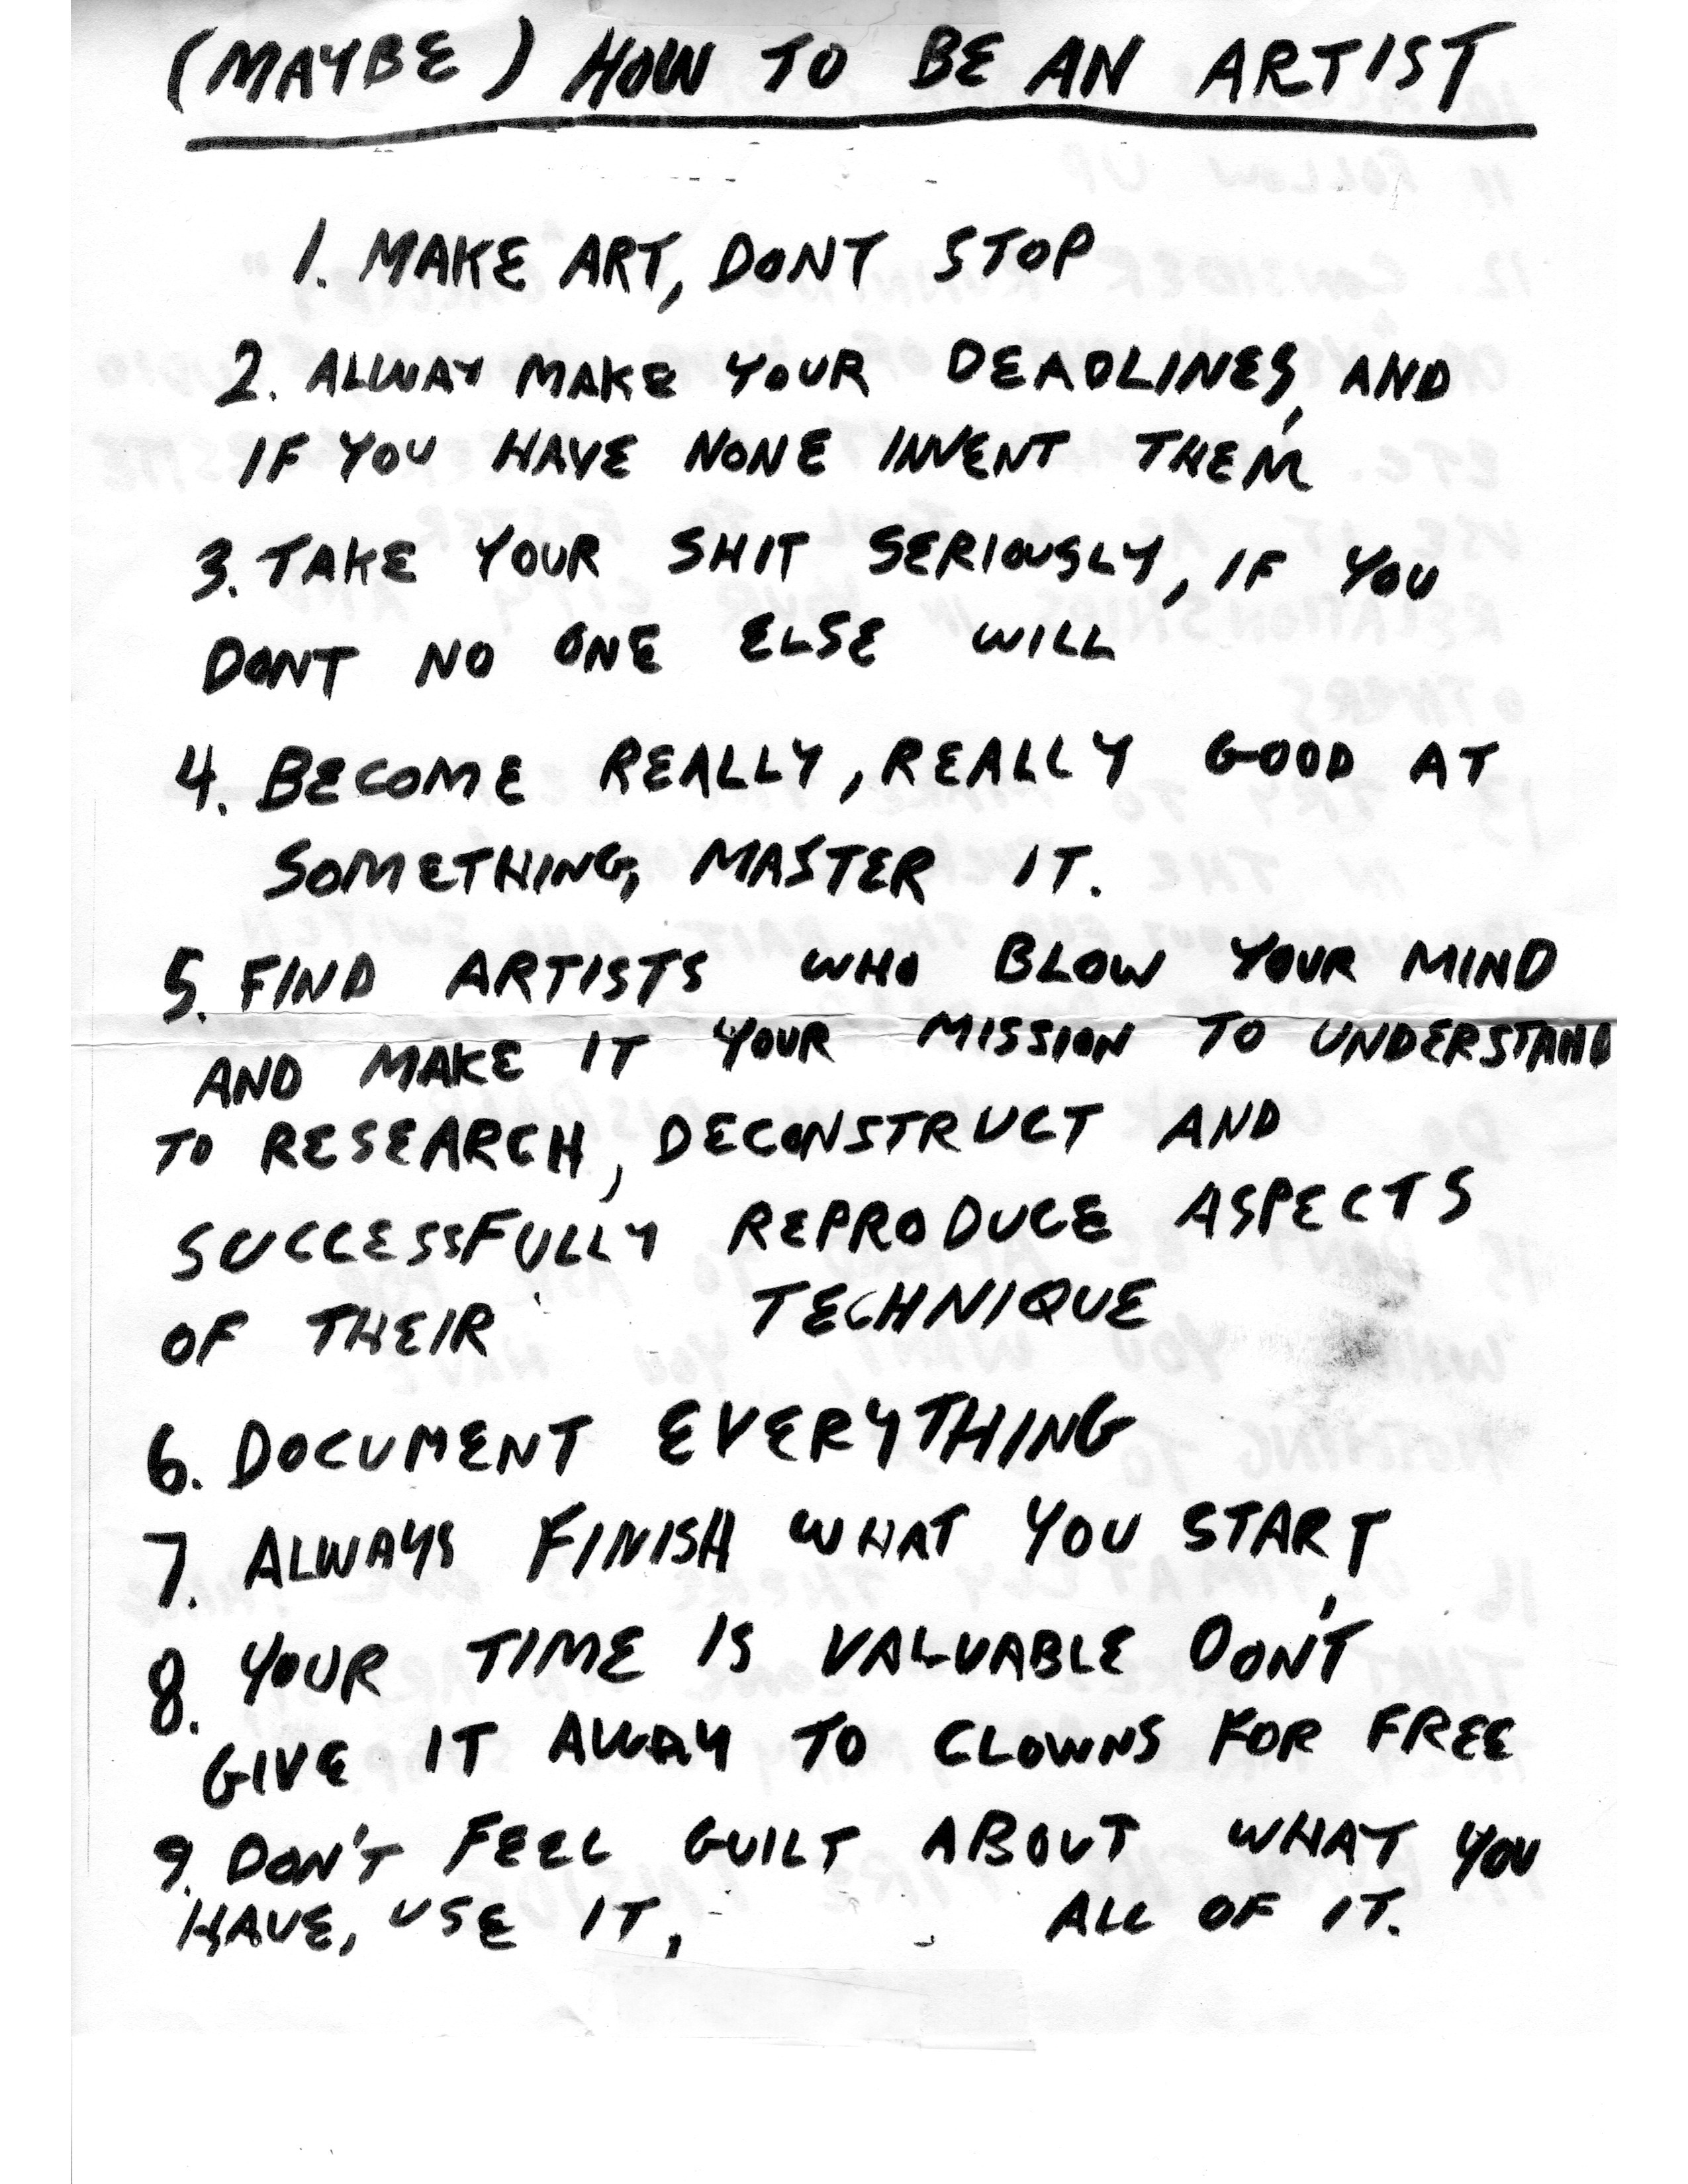 (MAYBE) HOW TO BE AN ARTIST
1. MAKE ART, DONT STOP
2. ALWAY MAKE YOUR DEADLINES, AND
IF YOU HAVE NONE INVENT THEM
3. TAKE YOUR SHIT SERIOUSLY, IF YOU
DONT NO ONE ELSE WILL
4. BECOME REALLY, REALLY GOOD AT
SOMETHING, MASTER IT.
5. FIND ARTISTS WHO BLOW YOUR MIND
AND MAKE IT YOUR MISSION TO UNDERSTAND
TO RESEARCH, DECONSTRUCT AND
SUCCESSFULLY REPRODUCE ASPECTS
OF THEIR TECHNIQUE
6. DOCUMENT EVERYTHING
7. ALWAYS FINISH WHAT YOU START
8. YOUR TIME IS VALUABLE DON'T
GIVE IT AWAY TO CLOWNS FOR FREE
9. DON'T FEEL GUILT ABOUT WHAT YOU
HAVE, USE IT, ALL OF IT.